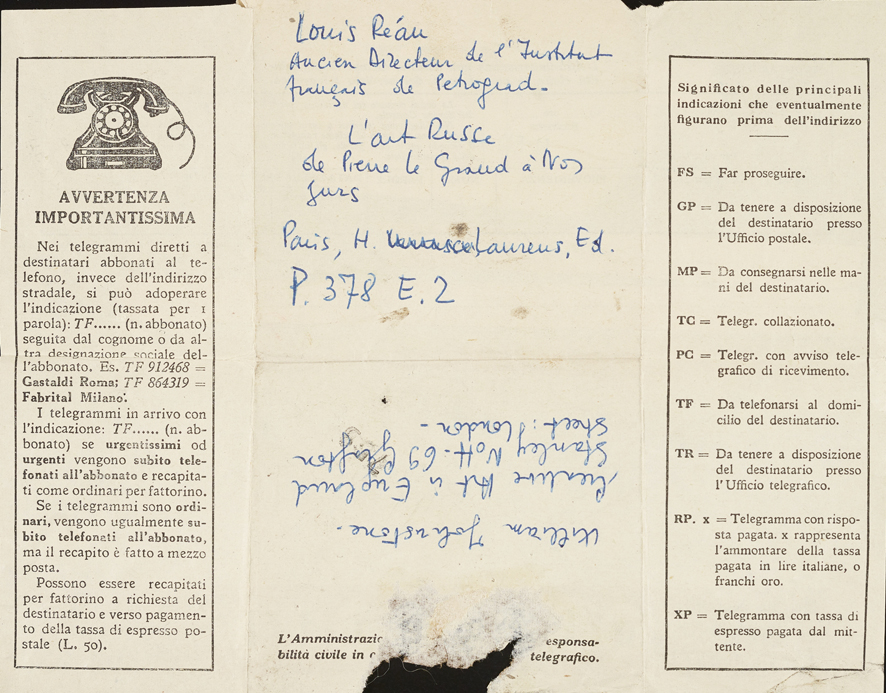 AVVERTENZA
IMPORTANTISSIMA
Nei telegrammi diretti a
destinatari abbonati al te-
lefono, invece dell'indirizzo
stradale, si può adoperare
l'indicazione (tassata per 1
parola): TF...... (n. abbonato)
seguita dal cognome o da al-
tra designazione sociale del-
l'abbonato. Es. TF 912468 =
Gastaldi Roma; TF 864319 =
Fabrital Milano.
I telegrammi in arrivo con
l'indicazione: TF...... (n. ab-
bonato) se urgentissimi od
urgenti vengono subito tele-
fonati all'abbonato e recapita-
ti come ordinari per fattorino.
Se i telegrammi sono ordi-
nari, vengono ugualmente su-
bito telefonati all'abbonato,
ma il recapito è fatto a mezzo
posta.
Possono essere recapitati
per fattorino a richiesta del
destinatario e verso pagamen-
to della tassa di espresso po-
stale (L. 50).
Louis Réau
Ancien Directeur de l'Institut
français de Petrograd.
L'art Russe
de Pierre le Grand à Nos
Jurs
Paris, H. Laurens, Ed.
P. 378 E. 2
William Johnstone.
Creative Art in England
Stanley Nott. 69 Grafton
Street: London -
L'Amministrazio esponsa-
bilità civile in c telegrafico.
Significato delle principali
indicazioni che eventualmente
figurano prima dell'indirizzo
FS = Far proseguire.
GP = Da tenere a disposizione
del destinatario presso
l'Ufficio postale.
MP = Da consegnarsi nelle ma-
ni del destinatario.
TC = Telegr. collazionato.
PC = Telegr. con avviso tele-
grafico di ricevimento.
TF = Da telefonarsi al domi-
cilio del destinatario.
TR = Da tenere a disposizione
del destinatario presso
l'Ufficio telegrafico.
RP. x = Telegramma con rispo-
sta pagata. x rappresenta
l'ammontare della tassa
pagata in lire italiane, o
franchi oro.
XP = Telegramma con tassa di
espresso pagata dal mit-
tente.